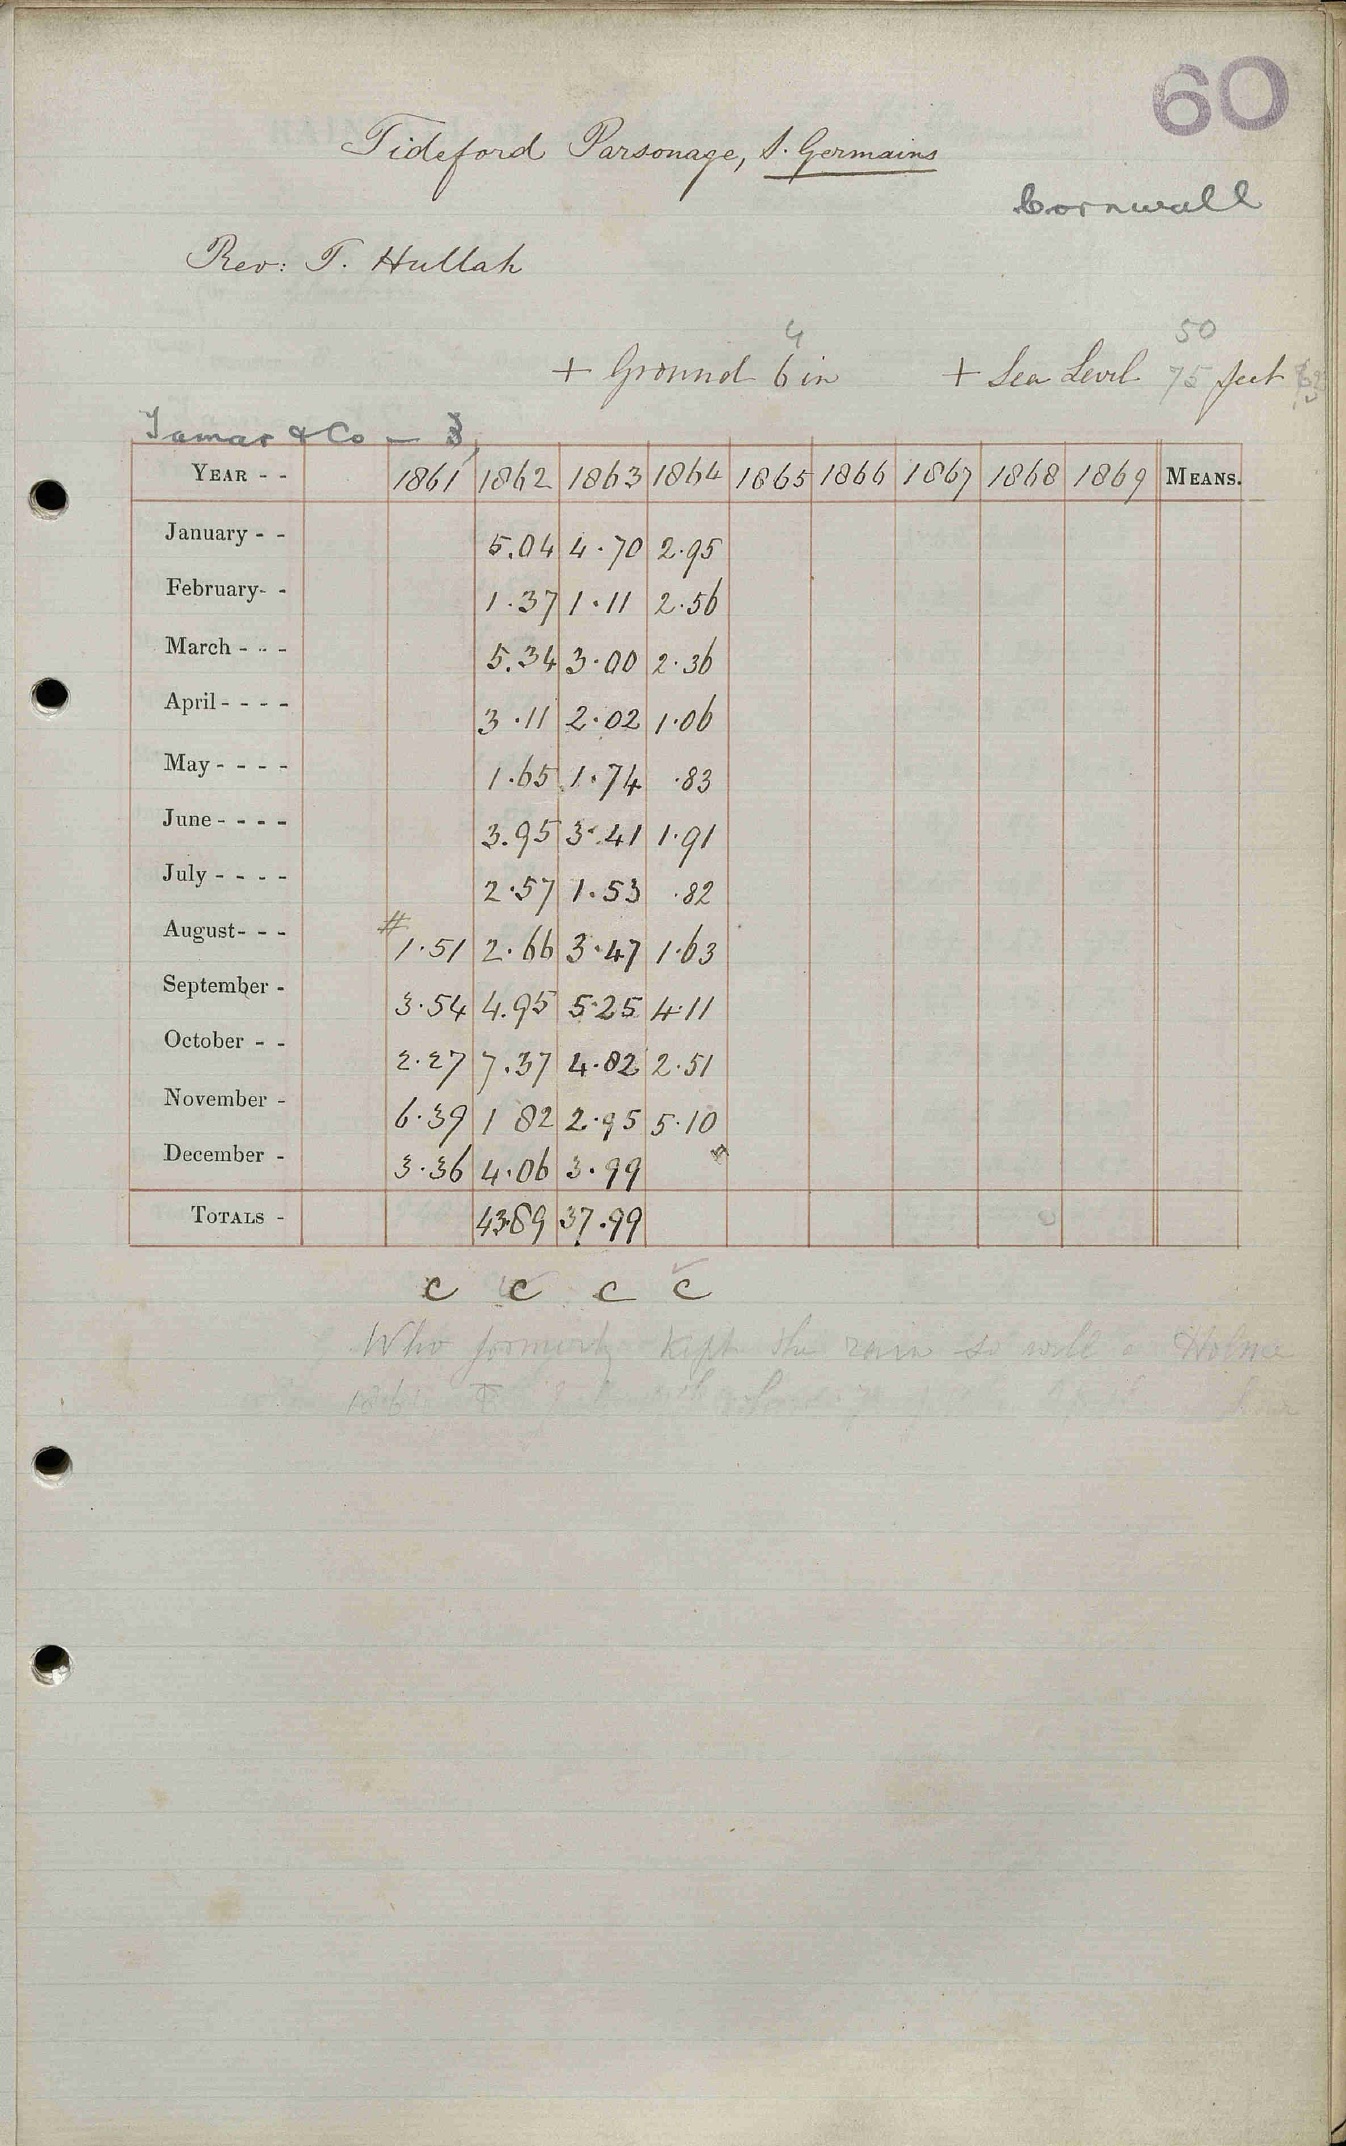 60
Tideford Parsonage, S. Germains
Cornwall
Rev: T. Hullah
4 50
+ Ground 6 in + Sea Level 75 feet
Tamar & Co — 3
YEAR - - 1861 1862 1863 1864 1865 1866 1867 1868 1869 MEANS.
January - - 5.04 4.70 2.95
February- - 1.37 1.11 2.56
March - - - 5.34 3.00 2.36
April - - - - 3.11 2.02 1.06
May - - - - 1.65 1.74 .83
June - - - - 3.95 3.41 1.91
July - - - - 2.57 1.53 .82
August- - - # 1.51 2.66 3.47 1.63
September - 3.54 4.95 5.25 4.11
October - - 2.27 7.37 4.82 2.51
November - 6.39 1 82 2.95 5.10
December - 3.36 4.06 3.99
TOTALS - 43.89 37.99
c c c c
Who formerly kept the rain so well a Holne